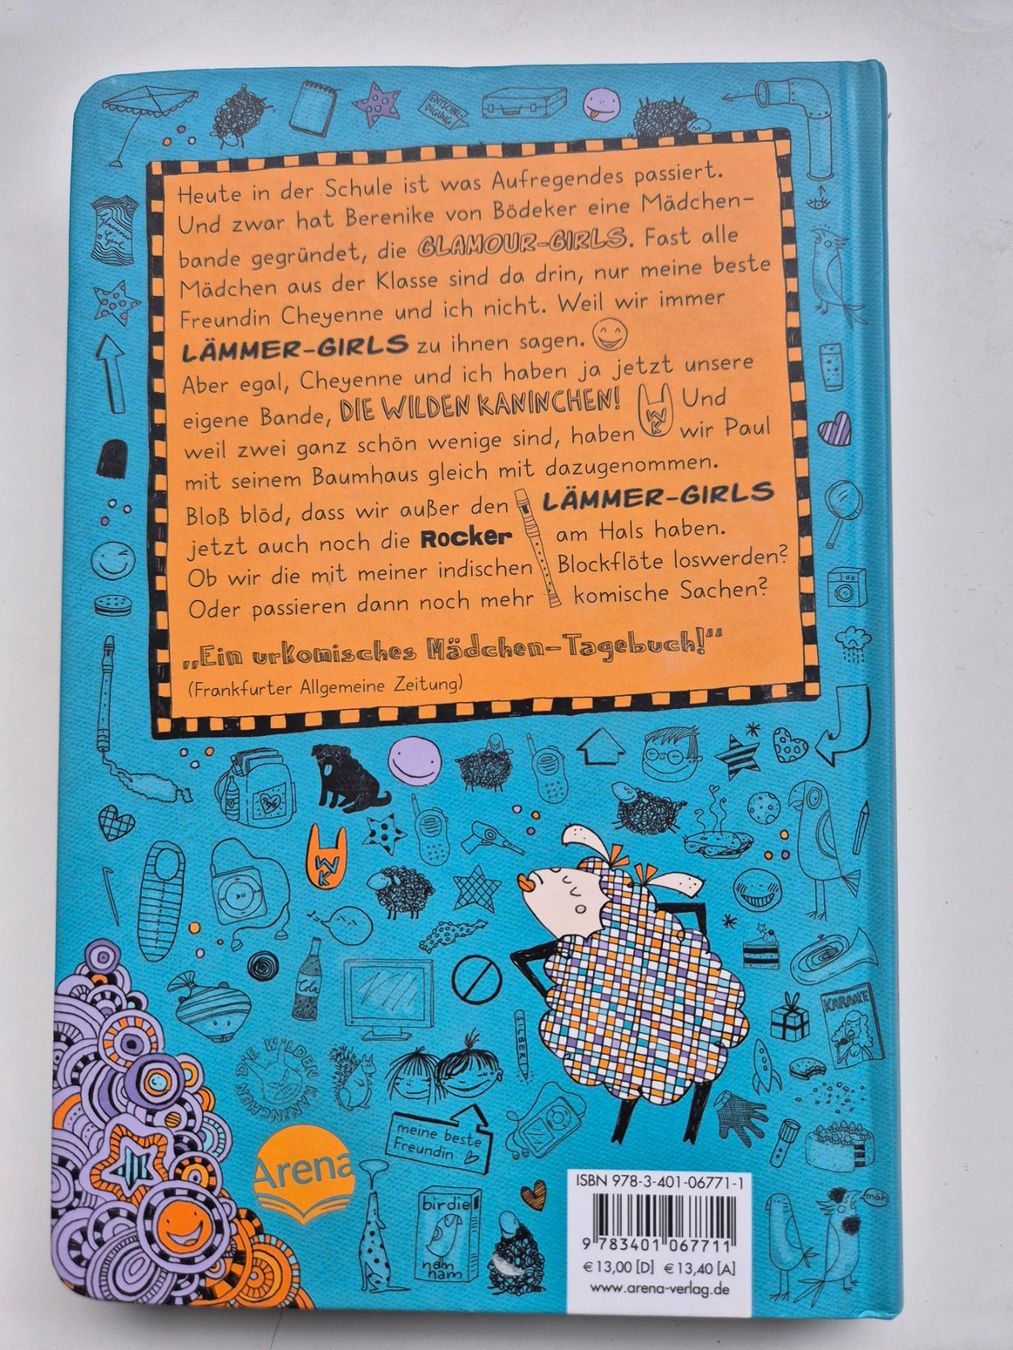 ENTSCHUL-
DIGUNG
Heute in der Schule ist was Aufregendes passiert.
Und zwar hat Berenike von Bödeker eine Mädchen-
bande gegründet, die GLAMOUR-GIRLS. Fast alle
Mädchen aus der Klasse sind da drin, nur meine beste
Freundin Cheyenne und ich nicht. Weil wir immer
LÄMMER-GIRLS zu ihnen sagen.
Aber egal, Cheyenne und ich haben ja jetzt unsere
eigene Bande, DIE WILDEN KANINCHEN! WK Und
weil zwei ganz schön wenige sind, haben wir Paul
mit seinem Baumhaus gleich mit dazugenommen.
Bloß blöd, dass wir außer den LÄMMER-GIRLS
jetzt auch noch die Rocker am Hals haben.
Ob wir die mit meiner indischen Blockflöte loswerden?
Oder passieren dann noch mehr komische Sachen?
„Ein urkomisches Mädchen-Tagebuch!“
(Frankfurter Allgemeine Zeitung)
WK
Cola
KARAOKE
SILBER
DIE WILDEN KANINCHEN
meine beste
Freundin
Arena
birdie
nam
nam
mäh
ISBN 978-3-401-06771-1
9 783401 067711
€ 13,00 [D] € 13,40 [A]
www.arena-verlag.de